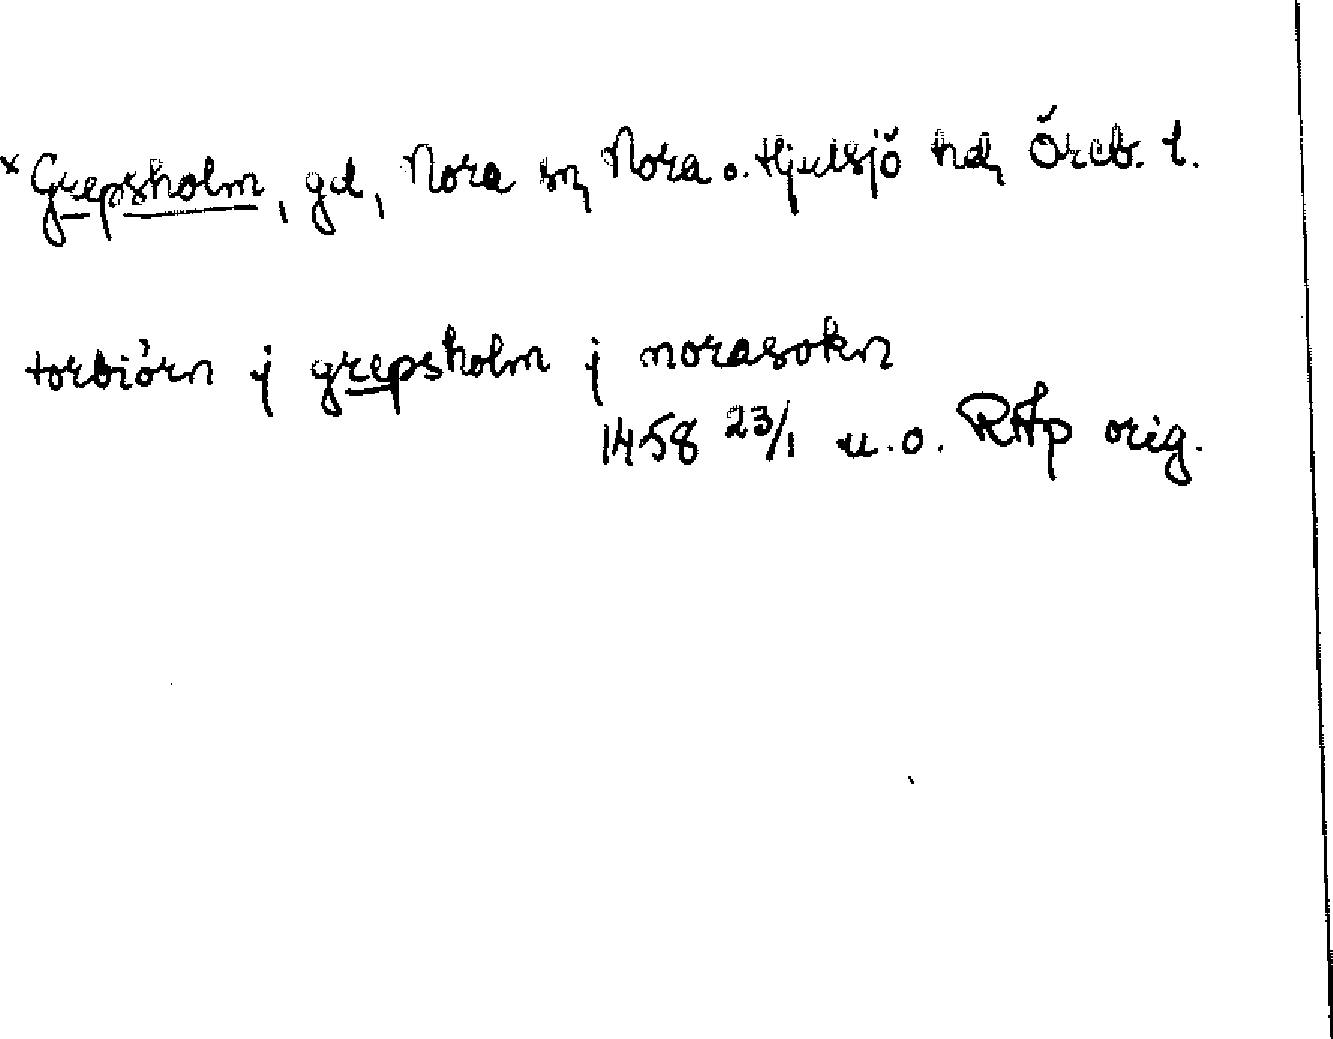 x Grepsholm, gd, Nora sn, Nora o. Hjulsjö hd, Öreb. l.
torbiörn j grepsholm j norasokn
1458 23/1 u.o. RAp orig.